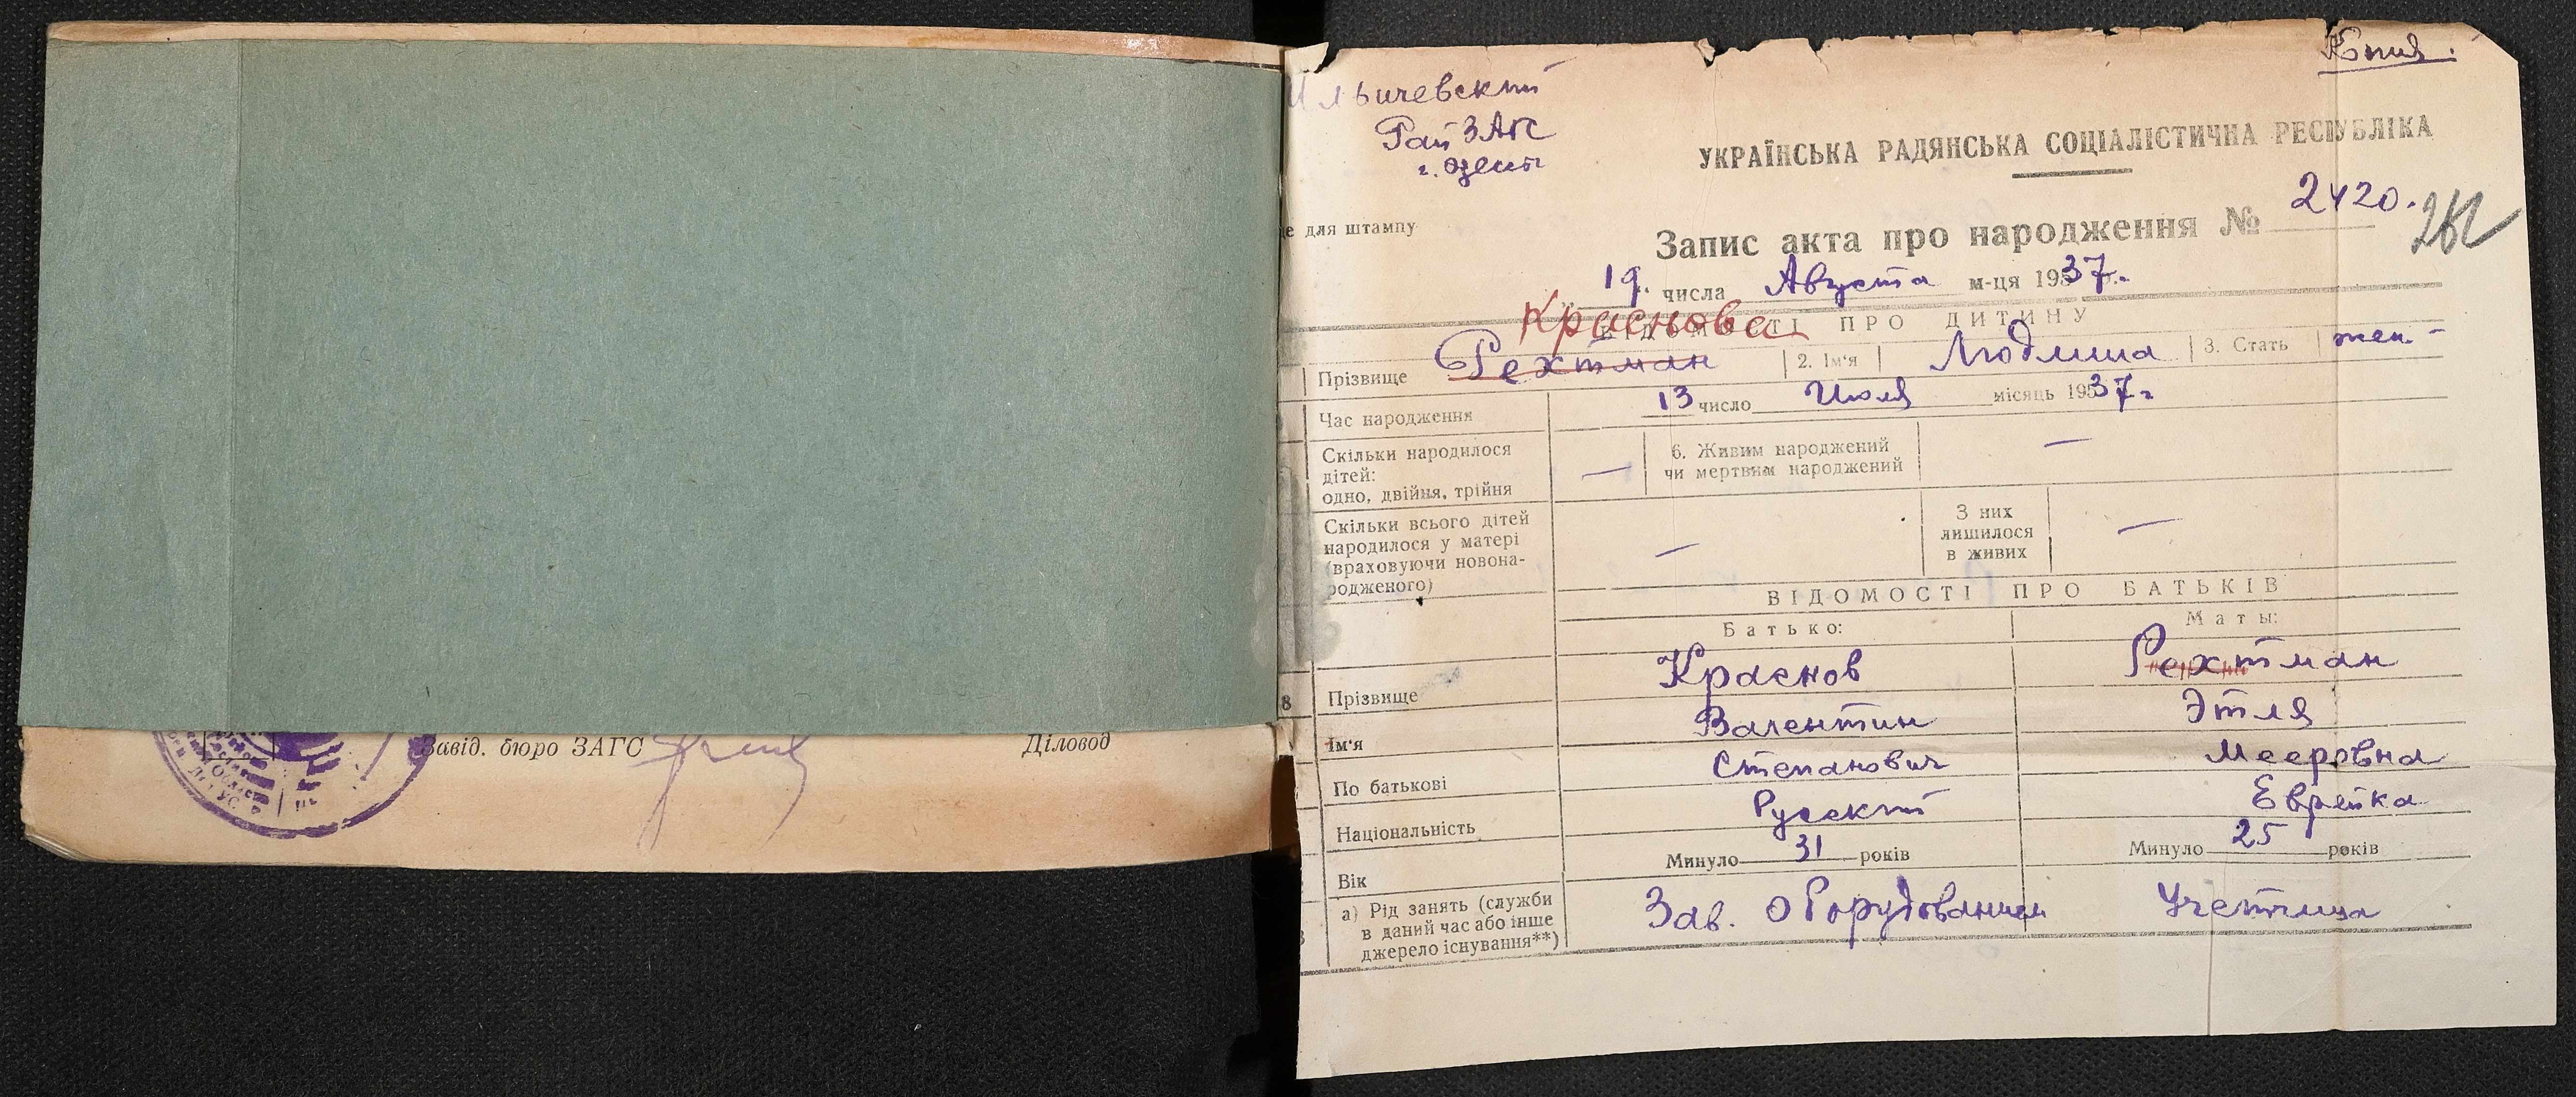 Завід. бюро ЗАГС
Діловод
Копия.
Ильичевский
РайЗАГС
г. Одессы
це для штампу
УКРАЇНСЬКА РАДЯНСЬКА СОЦІАЛІСТИЧНА РЕСПУБЛІКА
Запис акта про народження № 2420.
19. числа Августа м-ця 1937.
Краснова
ВІДОМОСТІ ПРО ДИТИНУ
Прізвище Рехтман 2. Ім'я Людмила 3. Стать жен-
Час народження 13 число Июля місяць 1937 г
Скільки народилося
дітей:
одно, двійня, трійня —
6. Живим народжений
чи мертвим народжений —
Скільки всього дітей
народилося у матері
(враховуючи новона-
родженого) —
З них
лишилося
в живих —
ВІДОМОСТІ ПРО БАТЬКІВ
Батько: Маты:
8 Прізвище Краснов Рехтман
Ім'я Валентин Этля
По батькові Степанович Мееровна
Національність Русский Еврейка
Вік Минуло 31 років Минуло 25 років
а) Рід занять (служби
в даний час або інше
джерело існування**) Зав. оборудованием Учетчица